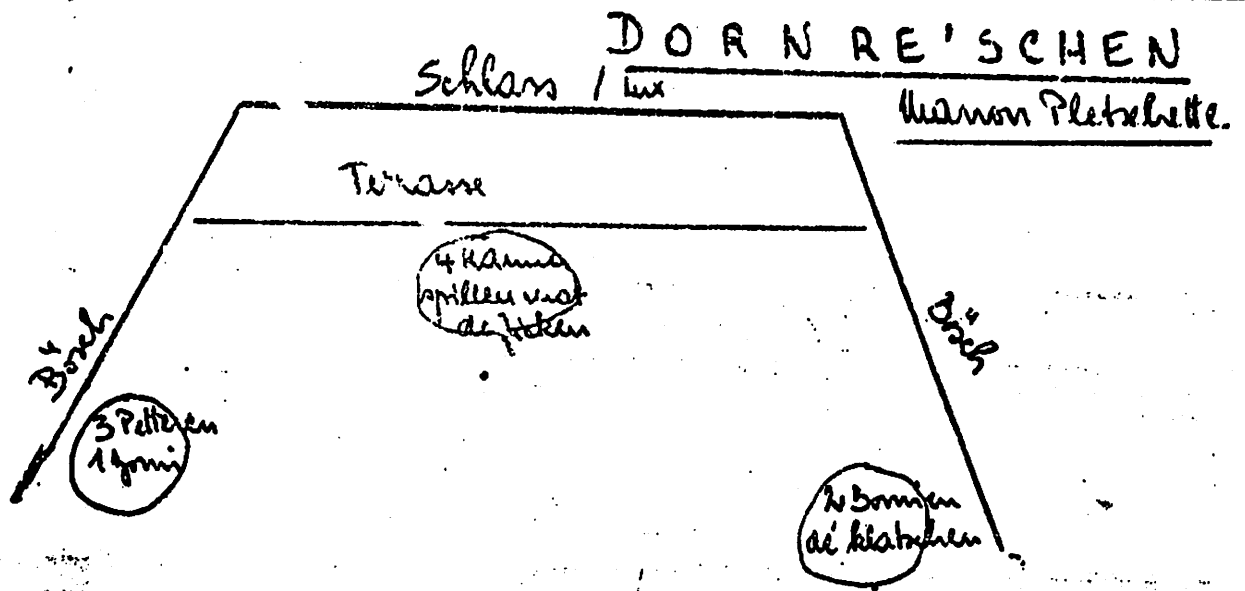 DORNRE'SCHEN
Schlass / Lux
Manon Pletschette.
Terrasse
4 Kanner
spillen mat
de
Bösch
Bösch
3 Petteren
1 Jomi
2 Bomien
dé klatschen